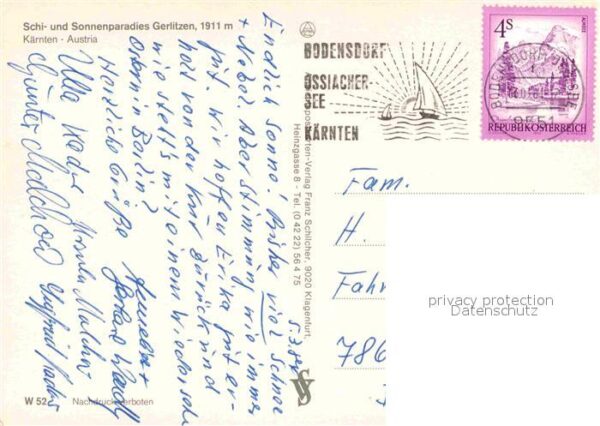 Schi- und Sonnenparadies Gerlitzen, 1911 m
Kärnten - Austria
5.3.84
Endlich Sonne. Bisher viel Schnee
+ Nebel. Aber Stimmung wie immer
gut. Wir hoffen Erika gut er-
holt von der Kur zurück und
wie steht's mit einem Wiedersehn
Ostern in Berlin?
Herzliche Grüße
Ulla
Ursula
Günter
W 52
Nachdruck verboten
Postkarten-Verlag Franz Schilcher, 9020 Klagenfurt,
Heinzgasse 8 - Tel. (0 42 22) 56 4 75
BODENSDORF
OSSIACHER-
SEE
KÄRNTEN
4 S
REPUBLIK ÖSTERREICH
9551
Fam.
H.
Fahr
786
privacy protection
Datenschutz